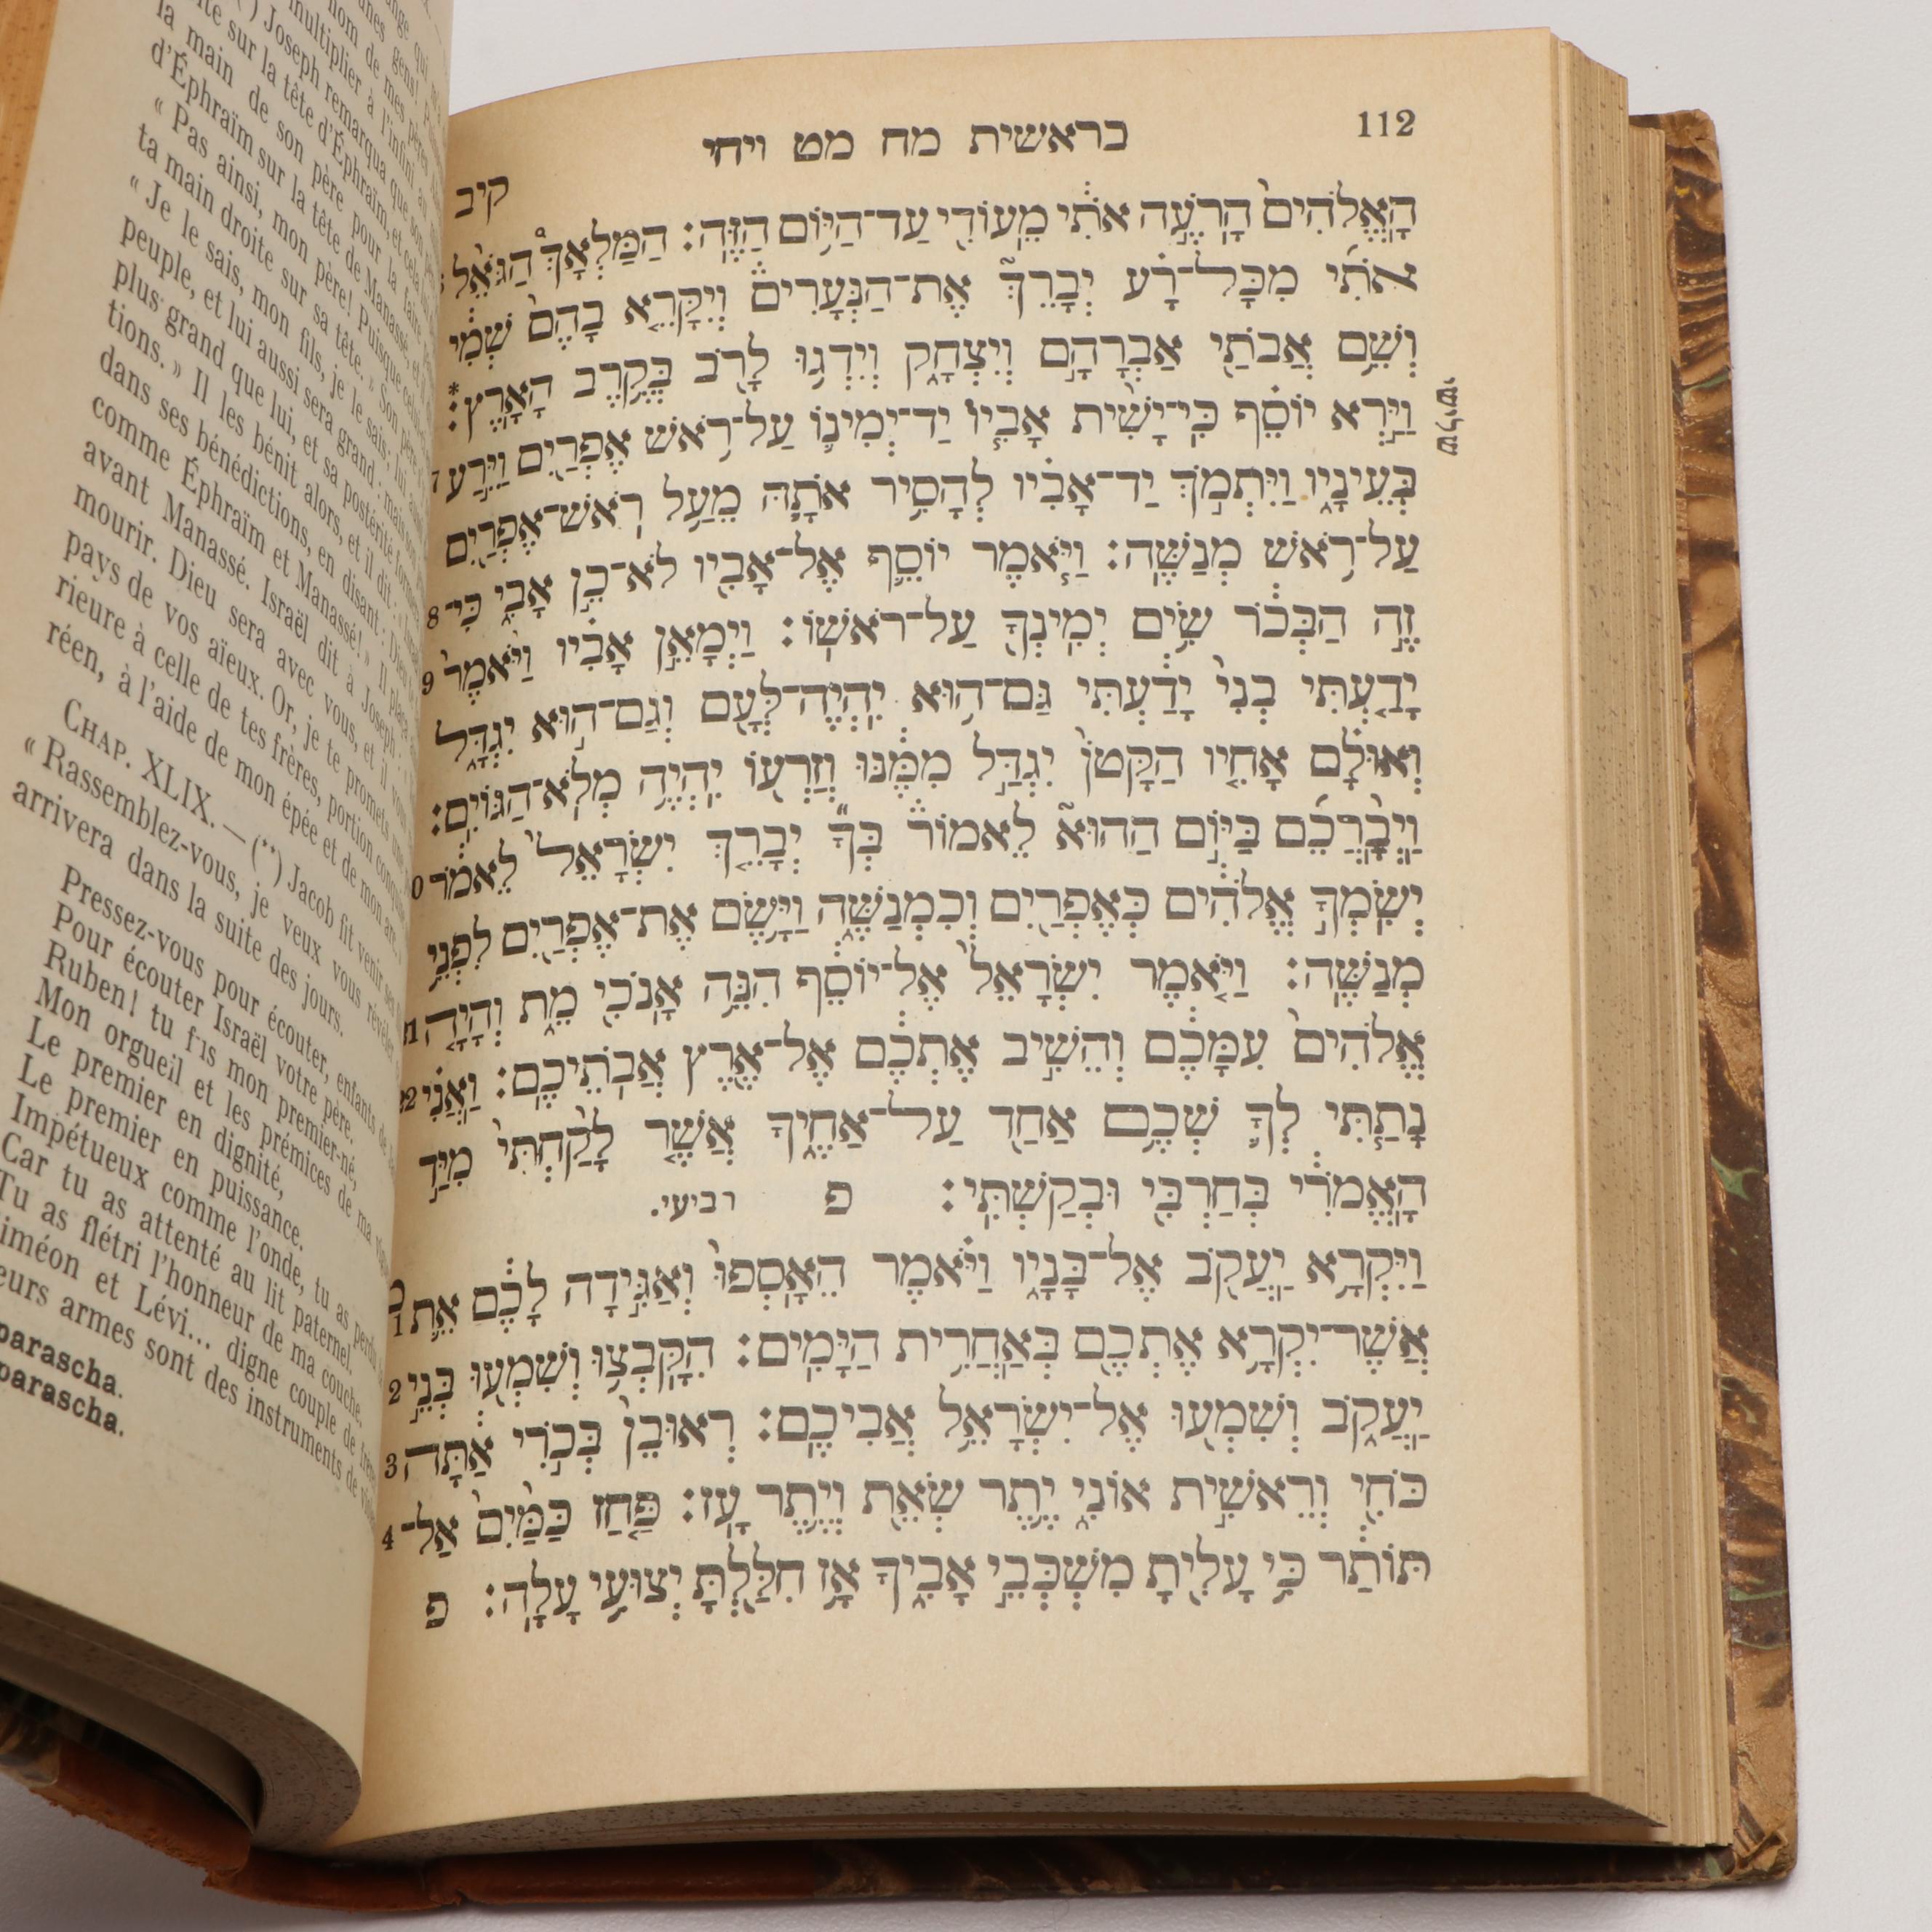 112
בראשית מח מט ויחי
קיב
הָאֱלֹהִים֙ הָרֹעֶ֣ה אֹתִ֔י מֵעוֹדִ֖י עַד־הַיּ֥וֹם הַזֶּֽה׃ הַמַּלְאָךְ֩ הַגֹּאֵ֨ל
אֹתִ֜י מִכָּל־רָ֗ע יְבָרֵךְ֮ אֶת־הַנְּעָרִים֒ וְיִקָּרֵ֤א בָהֶם֙ שְׁמִ֔י
וְשֵׁ֥ם אֲבֹתַ֖י אַבְרָהָ֣ם וְיִצְחָ֑ק וְיִדְגּ֥וּ לָרֹ֖ב בְּקֶ֥רֶב הָאָֽרֶץ׃*
שלישי
וַיַּ֣רְא יוֹסֵ֗ף כִּֽי־יָשִׁ֨ית אָבִ֧יו יַד־יְמִינ֛וֹ עַל־רֹ֥אשׁ אֶפְרַ֖יִם וַיֵּ֣רַע 7
בְּעֵינָ֑יו וַיִּתְמֹ֣ךְ יַד־אָבִ֗יו לְהָסִ֥יר אֹתָ֛הּ מֵעַ֥ל רֹאשׁ־אֶפְרַ֖יִם
עַל־רֹ֥אשׁ מְנַשֶּֽׁה׃ וַיֹּ֧אמֶר יוֹסֵ֛ף אֶל־אָבִ֖יו לֹא־כֵ֣ן אָבִ֑י כִּי־ 8
זֶ֣ה הַבְּכֹ֔ר שִׂ֥ים יְמִֽינְךָ֖ עַל־רֹאשֽׁוֹ׃ וַיְמָאֵ֣ן אָבִ֗יו וַיֹּ֙אמֶר֙ 9
יָדַ֤עְתִּי בְנִי֙ יָדַ֔עְתִּי גַּם־ה֥וּא יִֽהְיֶה־לְּעָ֖ם וְגַם־ה֣וּא יִגְדָּ֑ל
וְאוּלָ֗ם אָחִ֤יו הַקָּטֹן֙ יִגְדַּ֣ל מִמֶּ֔נּוּ וְזַרְע֖וֹ יִהְיֶ֥ה מְלֹֽא־הַגּוֹיִֽם׃
וַיְבָ֨רֲכֵ֜ם בַּיּ֣וֹם הַהוּא֮ לֵאמוֹר֒ בְּךָ֗ יְבָרֵ֤ךְ יִשְׂרָאֵל֙ לֵאמֹ֔ר 0
יְשִֽׂמְךָ֣ אֱלֹהִ֔ים כְּאֶפְרַ֖יִם וְכִמְנַשֶּׁ֑ה וַיָּ֥שֶׂם אֶת־אֶפְרַ֖יִם לִפְנֵ֥י
מְנַשֶּֽׁה׃ וַיֹּ֤אמֶר יִשְׂרָאֵל֙ אֶל־יוֹסֵ֔ף הִנֵּ֥ה אָנֹכִ֖י מֵ֑ת וְהָיָ֤ה 21
אֱלֹהִים֙ עִמָּכֶ֔ם וְהֵשִׁ֣יב אֶתְכֶ֔ם אֶל־אֶ֖רֶץ אֲבֹתֵיכֶֽם׃ וַאֲנִ֞י 22
נָתַ֧תִּי לְךָ֛ שְׁכֶ֥ם אַחַ֖ד עַל־אַחֶ֑יךָ אֲשֶׁ֤ר לָקַ֙חְתִּי֙ מִיַּ֣ד
הָֽאֱמֹרִ֔י בְּחַרְבִּ֖י וּבְקַשְׁתִּֽי׃ פ רביעי.
וַיִּקְרָ֥א יַעֲקֹ֖ב אֶל־בָּנָ֑יו וַיֹּ֗אמֶר הֵאָֽסְפוּ֙ וְאַגִּ֣ידָה לָכֶ֔ם אֵ֛ת 1
אֲשֶׁר־יִקְרָ֥א אֶתְכֶ֖ם בְּאַחֲרִ֥ית הַיָּמִֽים׃ הִקָּבְצ֥וּ וְשִׁמְע֖וּ בְּנֵ֣י 2
יַעֲקֹ֑ב וְשִׁמְע֖וּ אֶל־יִשְׂרָאֵ֥ל אֲבִיכֶֽם׃ רְאוּבֵן֙ בְּכֹ֣רִי אַ֔תָּה 3
כֹּחִ֖י וְרֵאשִׁ֣ית אוֹנִ֑י יֶ֥תֶר שְׂאֵ֖ת וְיֶ֥תֶר עָֽז׃ פַּ֤חַז כַּמַּ֙יִם֙ אַל־ 4
תּוֹתַ֔ר כִּ֥י עָלִ֖יתָ מִשְׁכְּבֵ֣י אָבִ֑יךָ אָ֥ז חִלַּ֖לְתָּ יְצוּעִ֥י עָלָֽה׃ פ
Joseph remarqua que son
sur la tête d'Éphraïm, et cela lui
la main de son père pour la faire
d'Éphraïm sur la tête de Manassé,
« Pas ainsi, mon père! Puisque
ta main droite sur sa tête. » Son père
« Je le sais, mon fils, je le sais; lui aussi
peuple, et lui aussi sera grand: mais son
plus grand que lui, et sa postérité formera
tions. » Il les bénit alors, et il dit:
dans ses bénédictions, en disant: Dieu
comme Éphraïm et Manassé! » Il plaça
avant Manassé. Israël dit à Joseph:
mourir. Dieu sera avec vous, et il vous
pays de vos aïeux. Or, je te promets
rieure à celle de tes frères, portion conquise
réen, à l'aide de mon épée et de mon arc.
CHAP. XLIX. — (**) Jacob fit venir ses
« Rassemblez-vous, je veux vous révéler
arrivera dans la suite des jours.
Pressez-vous pour écouter, enfants de
Pour écouter Israël votre père.
Ruben! tu fis mon premier-né,
Mon orgueil et les prémices de ma
Le premier en dignité,
Le premier en puissance.
Impétueux comme l'onde, tu as perdu
Car tu as attenté au lit paternel.
Tu as flétri l'honneur de ma couche.
iméon et Lévi... digne couple de
eurs armes sont des instruments de
parascha.
parascha.